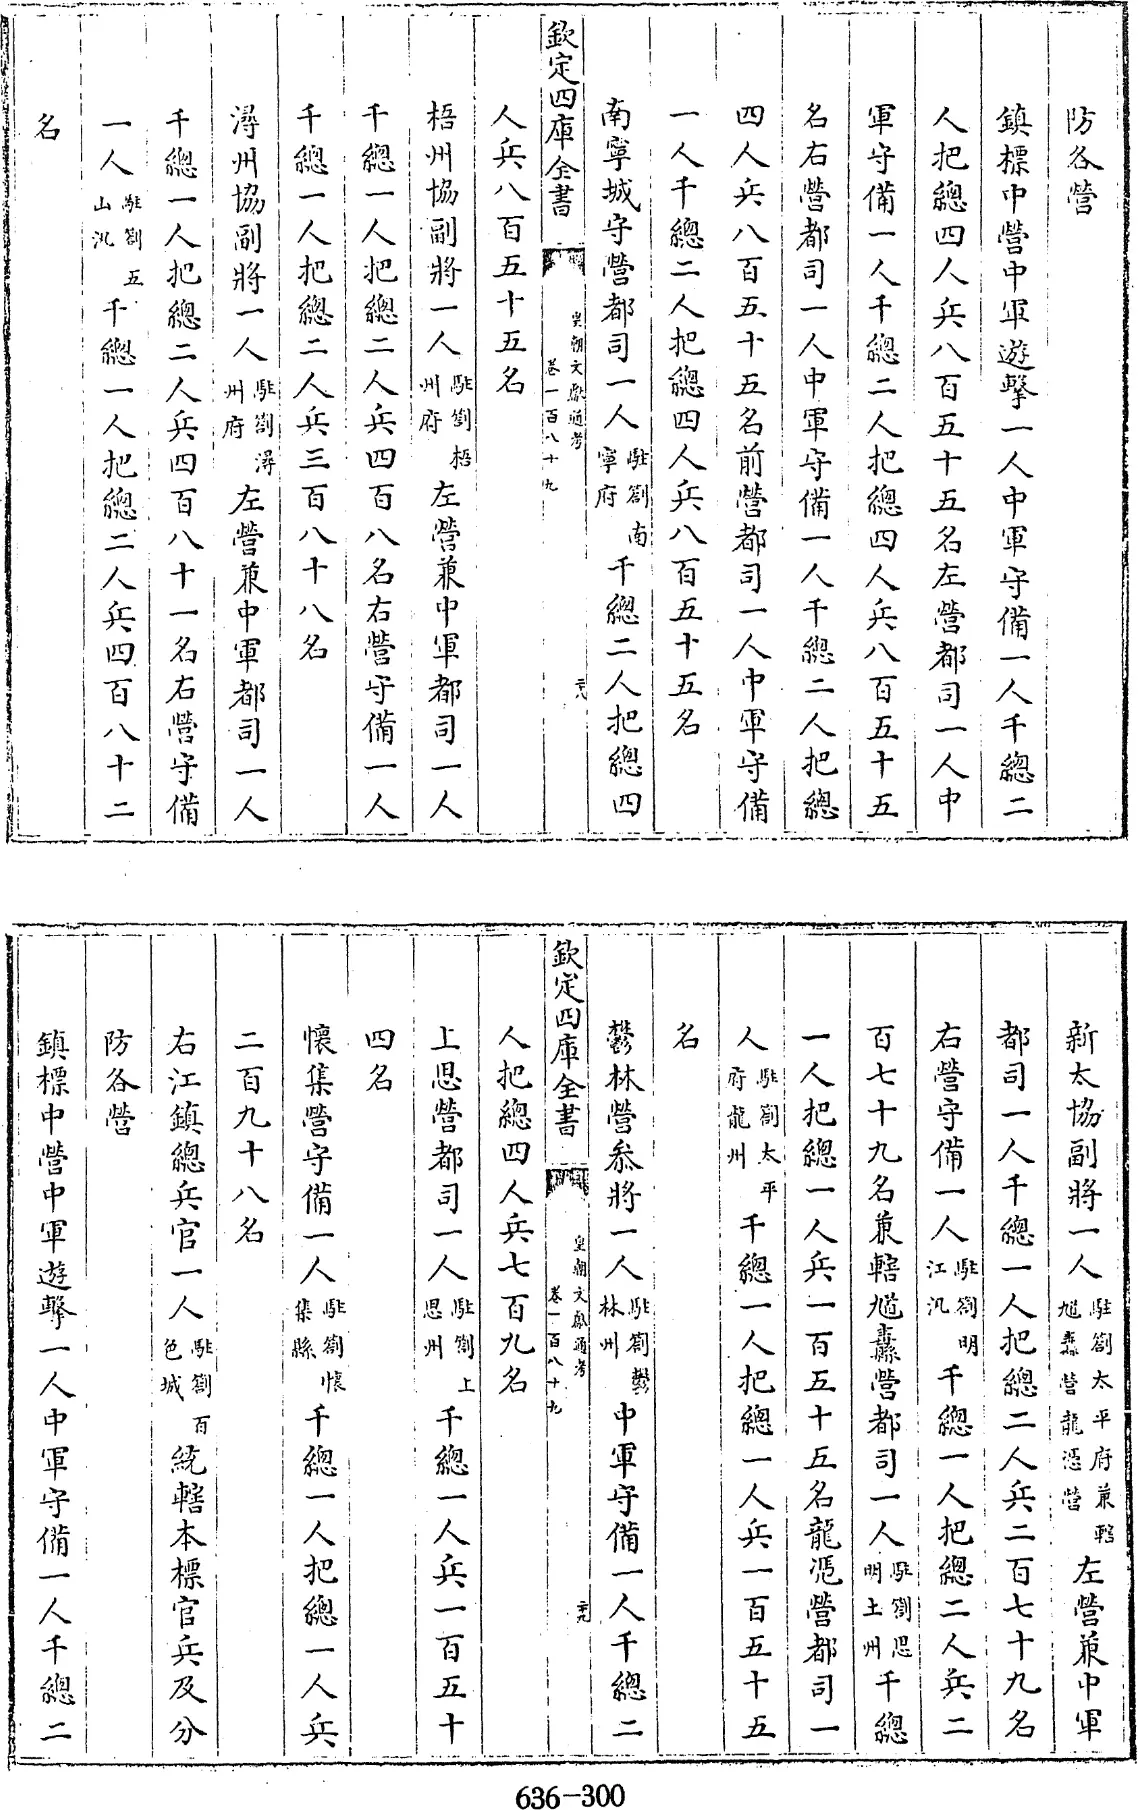 防各營
鎮標中營中軍遊擊一人中軍守備一人千總二
人把總四人兵八百五十五名左營都司一人中
軍守備一人千總二人把總四人兵八百五十五
名右營都司一人中軍守備一人千總二人把總
四人兵八百五十五名前營都司一人中軍守備
一人千總二人把總四人兵八百五十五名
南寧城守營都司一人駐劄南寧府千總二人把總四
欽定四庫全書
皇朝文獻通考
卷一百八十九
二十八
人兵八百五十五名
梧州協副將一人駐劄梧州府左營兼中軍都司一人
千總一人把總二人兵四百八名右營守備一人
千總一人把總二人兵三百八十八名
潯州協副將一人駐劄潯州府左營兼中軍都司一人
千總一人把總二人兵四百八十一名右營守備
一人駐劄五山汛千總一人把總二人兵四百八十二
名
新太協副將一人駐劄太平府兼轄馗纛營龍憑營左營兼中軍
都司一人千總一人把總二人兵二百七十九名
右營守備一人駐劄明江汛千總一人把總二人兵二
百七十九名兼轄馗纛營都司一人駐劄思明土州千總
一人把總一人兵一百五十五名龍憑營都司一
人駐劄太平府龍州千總一人把總一人兵一百五十五
名
鬱林營叅將一人駐劄鬱林州中軍守備一人千總二
欽定四庫全書
皇朝文獻通考
卷一百八十九
二十九
人把總四人兵七百九名
上思營都司一人駐劄上思州千總一人兵一百五十
四名
懷集營守備一人駐劄懷集縣千總一人把總一人兵
二百九十八名
右江鎮總兵官一人駐劄百色城統轄本標官兵及分
防各營
鎮標中營中軍遊擊一人中軍守備一人千總二
636-300